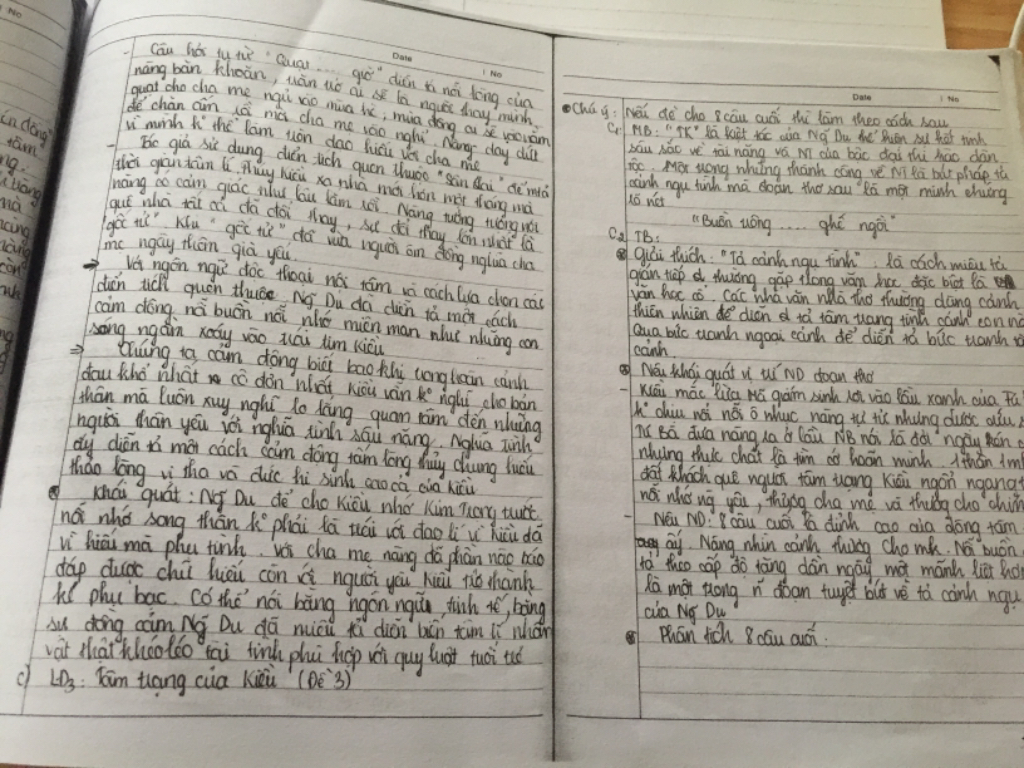 Date
No
- Câu hỏi tu từ "Quạt .... giờ" diễn tả nỗi lòng của
nàng băn khoăn, trăn trở ai sẽ là người thay mình
quạt cho cha mẹ ngủ vào mùa hè, mùa đông ai sẽ vào nằm
để chăn ấm rồi mời cha mẹ vào nghỉ. Nàng day dứt
vì mình k thể làm tròn đạo hiếu với cha mẹ
- Tác giả sử dụng điển tích quen thuộc "Sân Lai" để
thời gian tâm lí. Thúy Kiều xa nhà mới hơn một tháng mà
nàng có cảm giác như lâu lắm rồi. Nàng tưởng tượng nơi
quê nhà tất cả đã đổi thay, sự đổi thay lớn nhất là
"gốc tử" khi "gốc tử" đã vừa người ôm đồng nghĩa cha
mẹ ngày thêm già yếu.
=> Với ngôn ngữ độc thoại nội tâm và cách lựa chọn các
điển tích quen thuộc Ng Du đã diễn tả một cách
cảm động nỗi buồn nỗi nhớ miên man như những con
sóng ngầm xoáy vào trái tim Kiều
=> Chúng ta cảm động biết bao khi trong hoàn cảnh
đau khổ nhất cô đơn nhất Kiều vẫn k nghĩ cho bản
thân mà luôn suy nghĩ lo lắng quan tâm đến những
người thân yêu với nghĩa tình sâu nặng. Nghĩa tình
ấy diễn tả một cách cảm động tấm lòng thủy chung hiếu
thảo lòng vị tha và đức hi sinh cao cả của Kiều
Khái quát: Ng Du để cho Kiều nhớ Kim Trọng trước
nỗi nhớ song thân k phải là trái với đạo lí vì Kiều đã
vì hiếu mà phụ tình. Với cha mẹ nàng đã phần nào báo
đáp được chữ hiếu còn với người yêu Kiều trở thành
kẻ phụ bạc. Có thể nói bằng ngôn ngữ tinh tế, bằng
sự đồng cảm Ng Du đã miêu tả diễn biến tâm lí nhân
vật thật khéo léo tài tình phù hợp với quy luật tuổi trẻ
c) LĐ3: Tâm trạng của Kiều (Đề 3)
Date
No
Chú ý: Nếu đề cho 8 câu cuối thì làm theo cách sau
C1 MB: "TK" là kiệt tác của Ng Du thể hiện sự kết tinh
sâu sắc về tài năng và NT của bậc đại thi hào dân
tộc. Một trong những thành công về NT là bút pháp tả
cảnh ngụ tình mà đoạn thơ sau là một minh chứng
rõ nét
"Buồn trông .... ghế ngồi"
C2 TB:
Giải thích: "Tả cảnh ngụ tình": là cách miêu tả
gián tiếp thường gặp trong văn học đặc biệt là
văn học cổ. Các nhà văn nhà thơ thường dùng cảnh
thiên nhiên để diễn tả tâm trạng tình cảnh con
Qua bức tranh ngoại cảnh để diễn tả bức tranh
cảnh.
Nêu khái quát vị trí ND đoạn thơ
- Kiều mắc lừa Mã Giám Sinh rơi vào lầu xanh của
k chịu nổi nỗi ô nhục nàng tự tử nhưng được cứu
Tú Bà đưa nàng ra ở lầu NB nói là đợi ngày
nhưng thực chất là
đất khách quê người tâm trạng Kiều ngổn ngang
nỗi nhớ ng yêu, thương cha mẹ và thương cho chính
- Nêu ND: 8 câu cuối là đỉnh cao của dòng tâm
ấy. Nàng nhìn cảnh thương cho mk. Nỗi buồn
tả theo cấp độ tăng dần ngày một mãnh liệt hơn
là một trong n đoạn tuyệt bút về tả cảnh ngụ
của Ng Du
Phân tích 8 câu cuối: